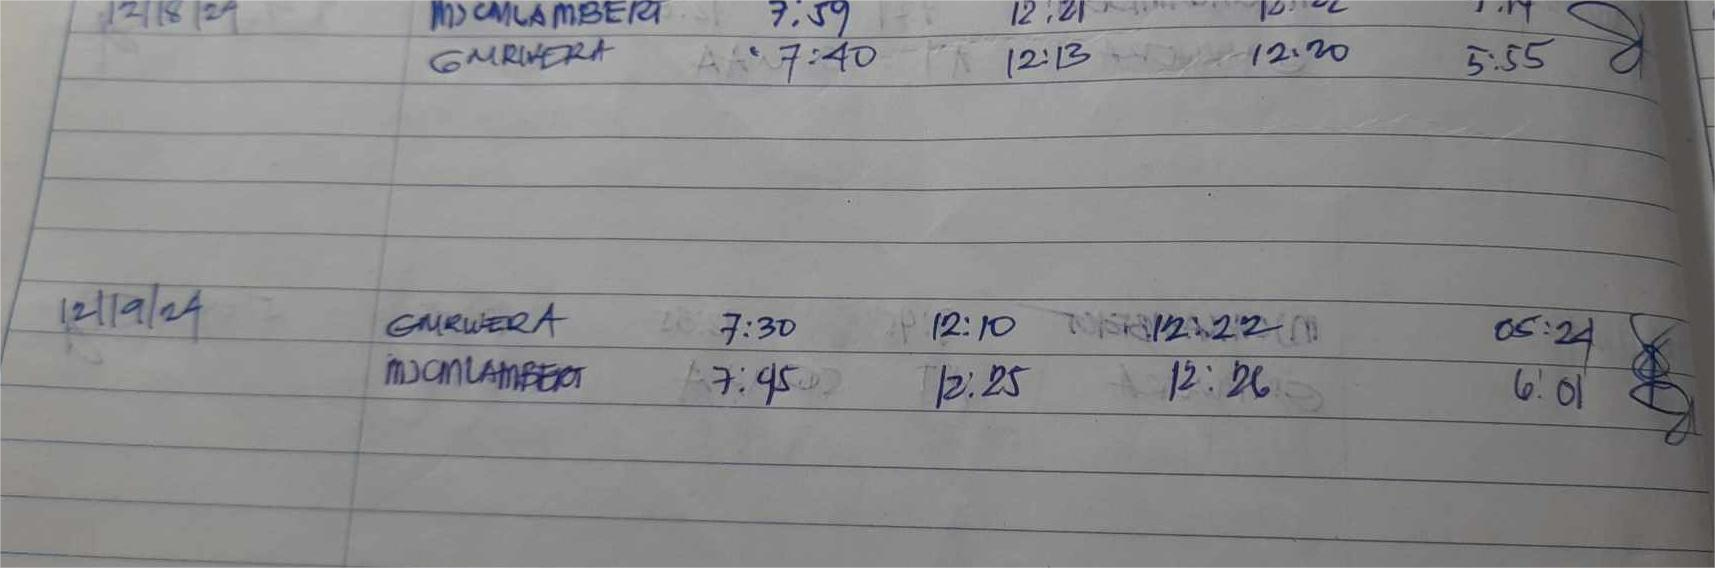 12/18/24 MJCMLAMBERT 7:59 12:21
GMRIVERA 7:40 12:13 12:20 5:55
12/19/24 GMRIVERA 7:30 12:10 12:22 05:24
MJCMLAMBERT 7:45 12:25 12:26 6:01